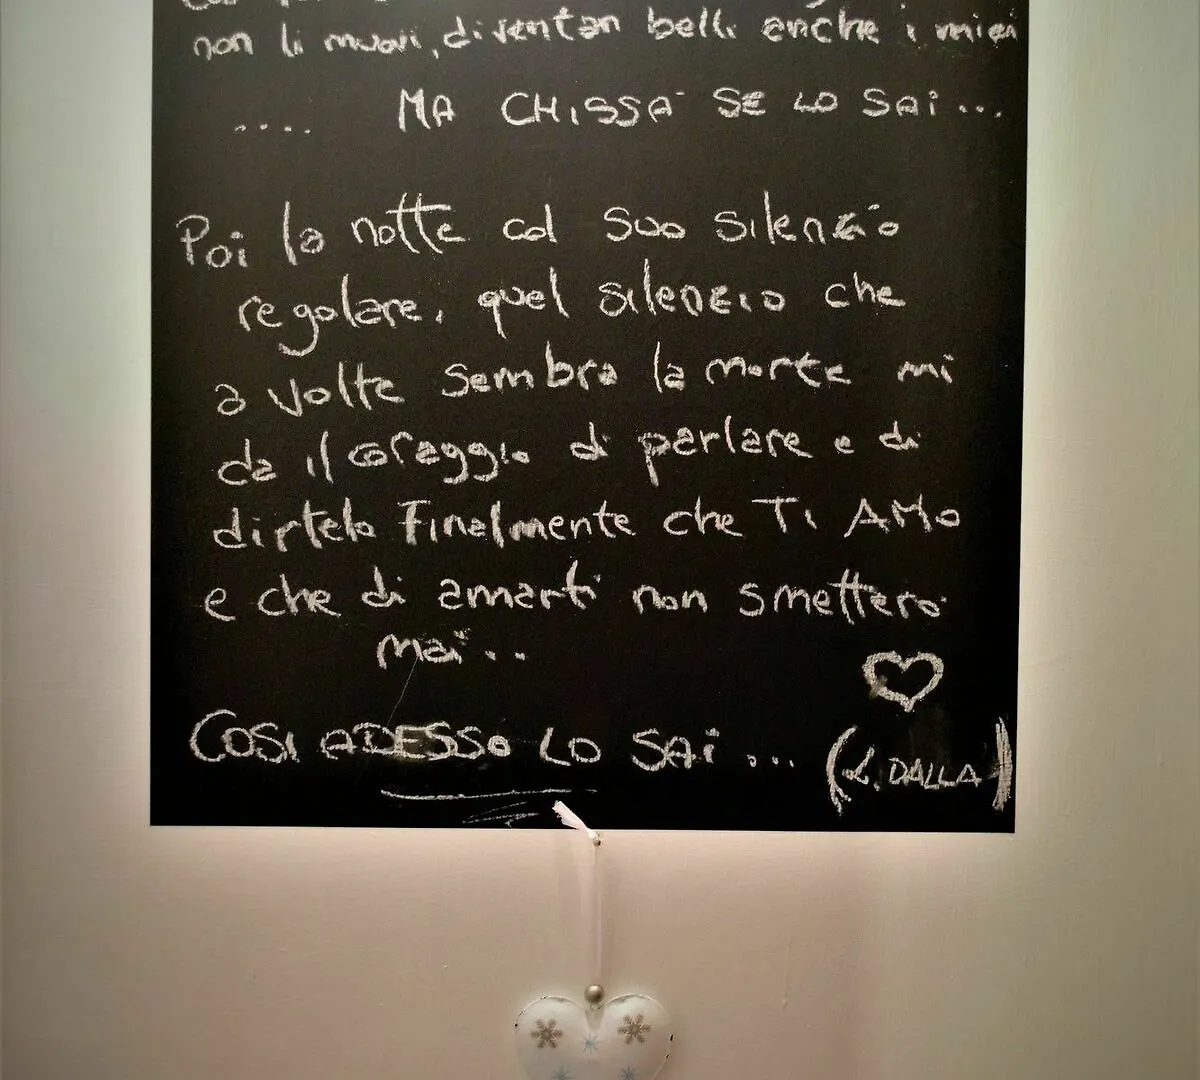 non li muovi, diventan belli anche i miei
.... MA CHISSA' SE LO SAI...
Poi la notte col suo silenzio
regolare, quel silenzio che
a volte sembra la morte mi
da il coraggio di parlare e di
dirtelo Finalmente che TI AMO
e che di amarti non smettero'
mai..
COSI ADESSO LO SAI ... (L. DALLA)